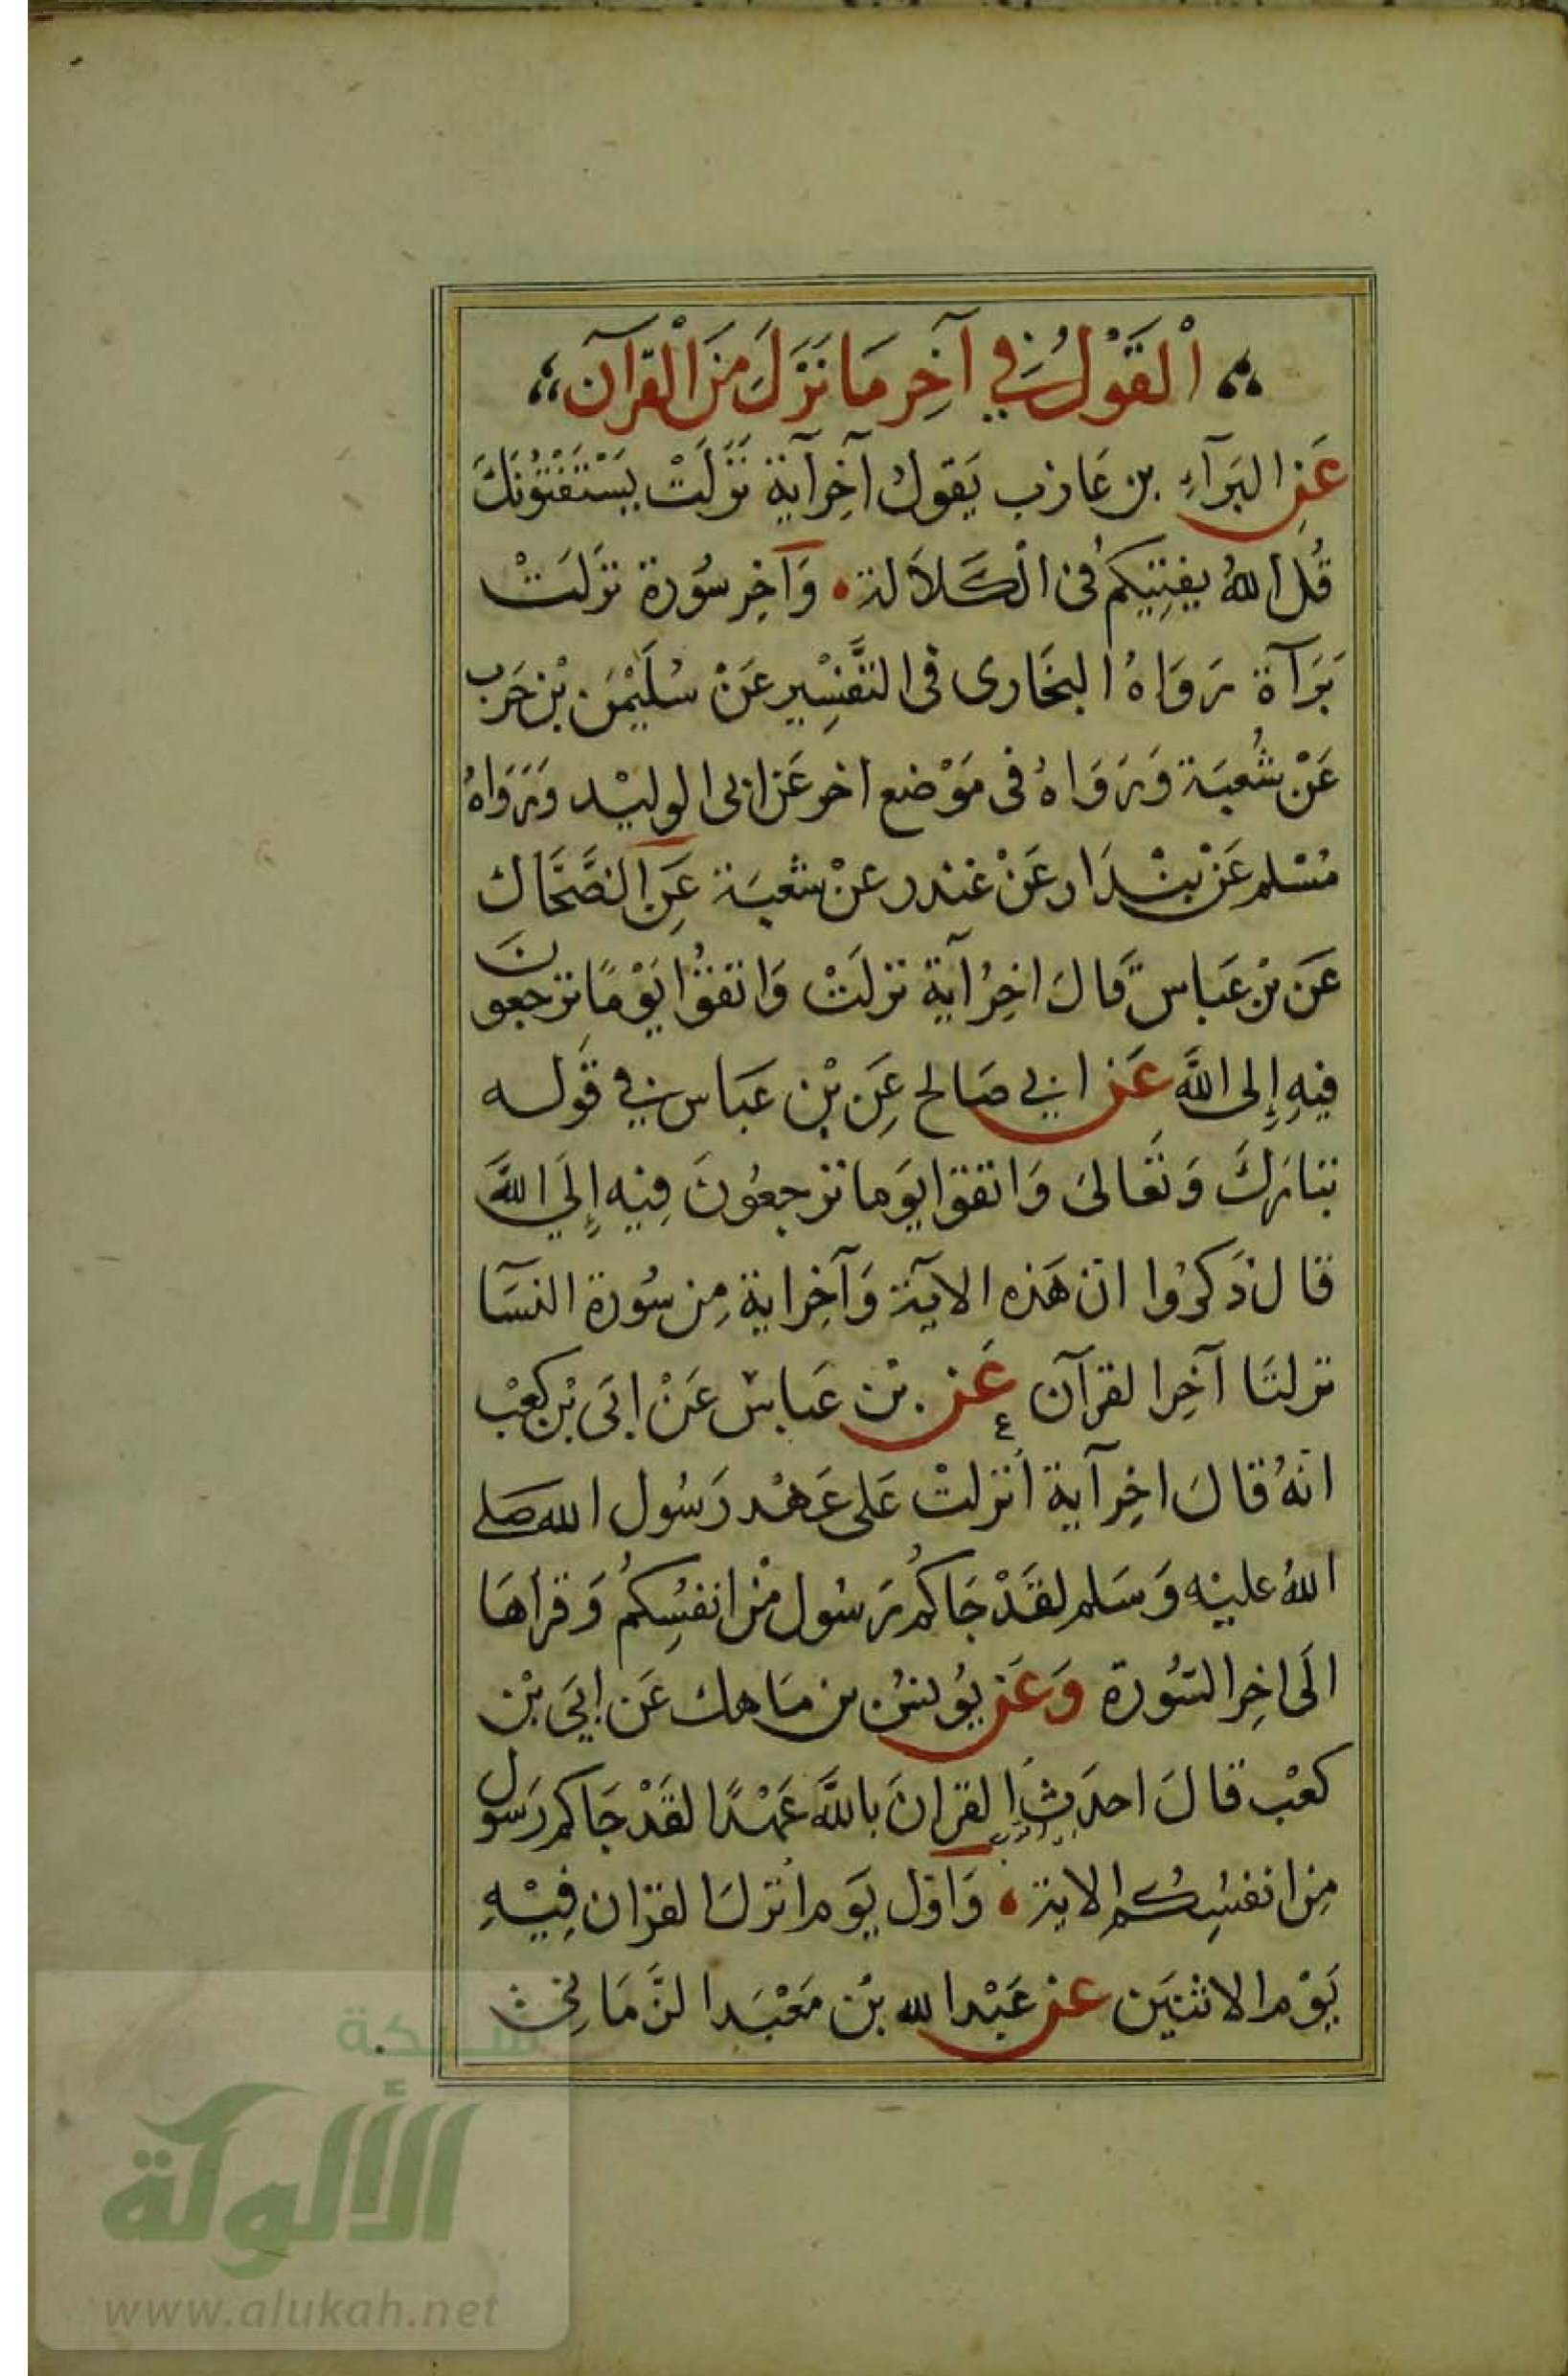 اَلْقَوْلُ فِي آخِر مَا نَزَلَ مِنَ الْقرآن
عَنِ البَرَآءِ بن عَازب يَقول آخِر آية نَزَلَتْ يَسْتَفْتُونَكَ
قُل اللهُ يفتِيكُم فى الكَلاَلة وَآخِر سُورة نزلَتْ
بَرَآة رَوَاهُ البخَارى فى التَّفْسِير عَنْ سُلَيْمٰن بْن حَرب
عَنْ شُعبَة وَرَوَاهُ فى مَوْضع اخر عَن ابى الوليْد وَرَوَاهُ
مُسْلم عَنْ بنْدَار عَنْ غندر عنْ شعبَة عَنِ الضَّحَّاك
عَن بْن عَباس قَالَ اخِرُ آية نزلَتْ وَاتقوُا يَوْمًا ترجعونَ
فيهِ إلى اللَّه عَن ابي صَالح عَنِ بْن عَبَاس في قَوله
تبَارَكَ وَتَعَالىَ وَاتقوا يَوما ترجعُونَ فِيْه إلَي اللَّه
قال ذَكرُوا ان هَذه الآية وَآخِر اية مِن سُورة النسَآ
نزلتا آخِر القرآن عَن بْن عَباسْ عَنْ ابَى بْن كعْب
انهُ قالَ اخِر آية أنزلتْ عَلى عَهْد رَسُول الله صَلى
اللهُ عليْه وَسَلم لقَدْ جَاكُم رَسُول مْن انفسِكُم وَقرأهَا
الَى اخِر السُّورة وَعَن يُونسُ بن مَاهك عَن ابَي بْن
كعْب قالَ احدَث القرانَ باللَّه عَهْدًا لقَدْ جَاكم رَسول
مِن انفسُِكُم الاية وَاوّل يَوم انزلَ القرَان فِيْهِ
يَوْم الاثنيَن عن عَبْد الله بْن مَعْبَد الزَّمَانِى
شبكة
الألوكة
www.alukah.net